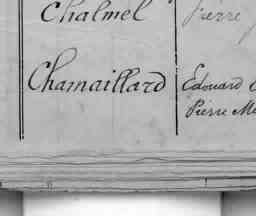 Chalmel Pierre
Chamaillard Edouard
Pierre